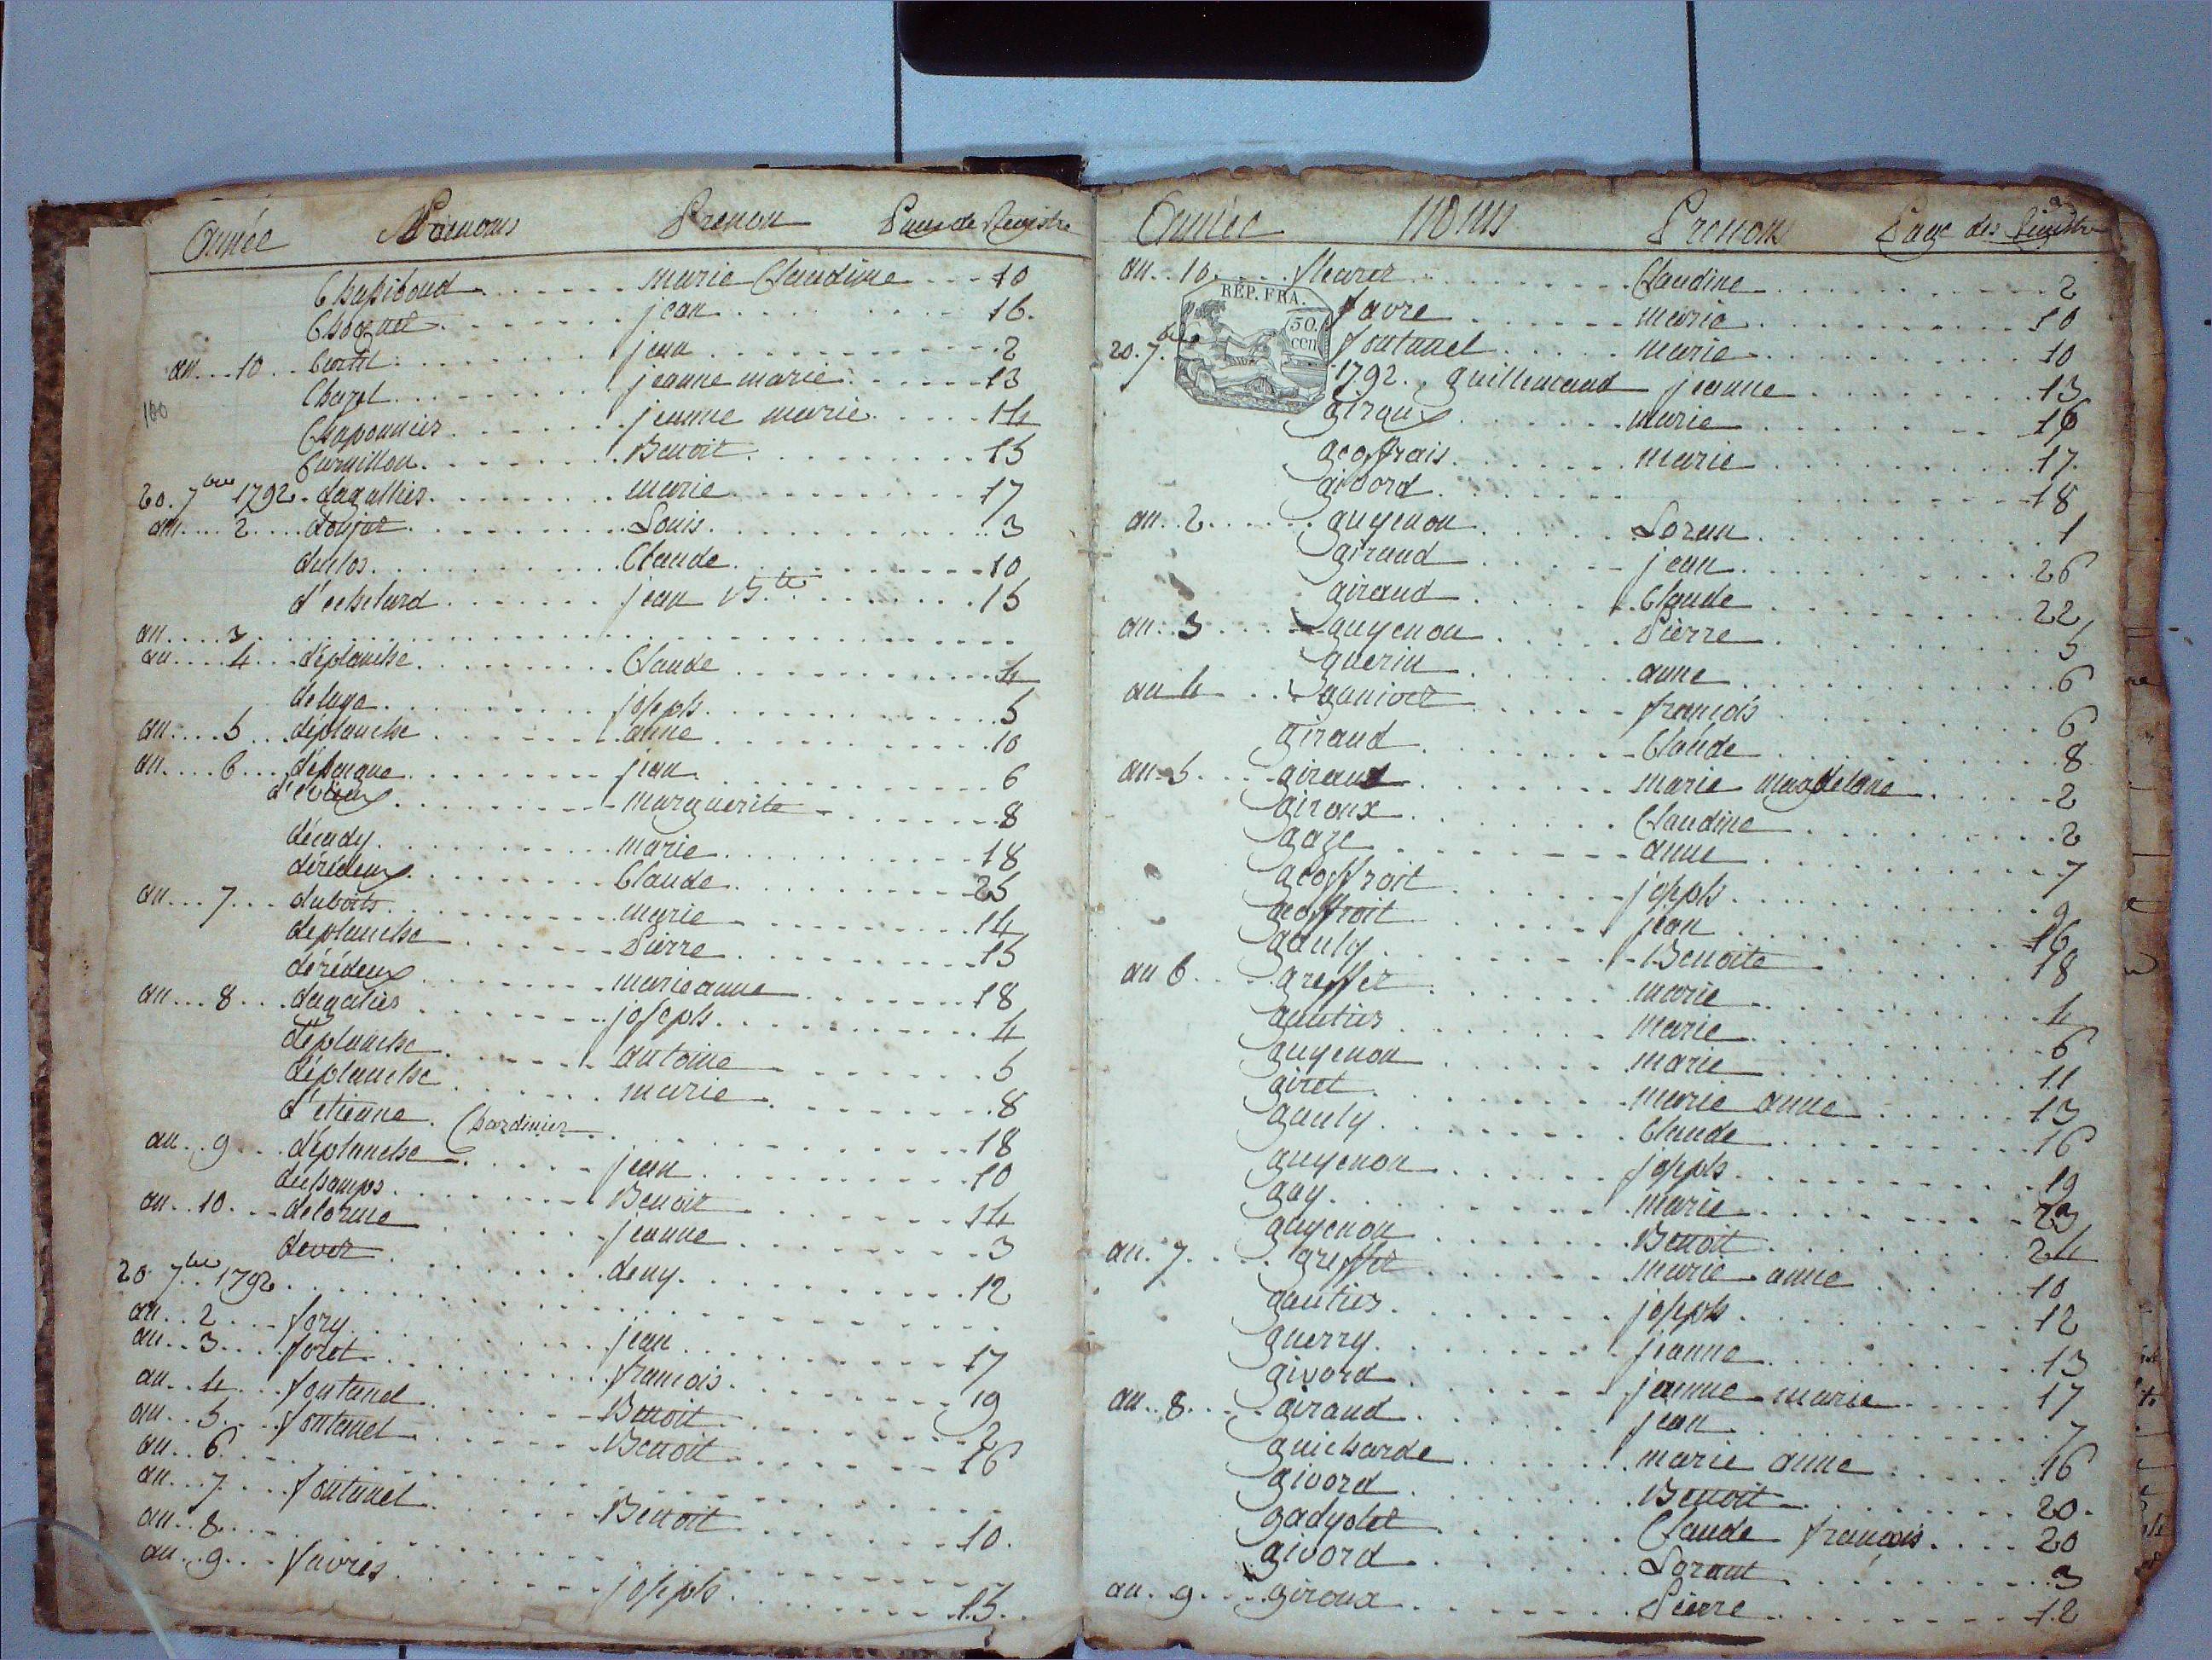 Année Prenoms Prenon Page de Registre
Chapiboud marie Claudine 10
Choqnet jean 16.
an 10 Curtil jean 2
Chazel jeanne marie 13
100
Chaponnier jeanne marie 14
Curnillon Benoit 15
20. 7bre 1792 dagallier marie 17
an 2 donjat Louis 3
duclos Claude 10
d'echelard jean Bte 15
an 3
an 4 déplanche Claude 4
deluge joseph 5
an 5 déplanche anne 10
an 6 déparque jean 6
d'evieux marguerite 8
décady marie 18
dérédeux Claude 25
an 7 dubois marie 14
déplanche Pierre 15
dérédeux marieanne 18
an 8 dagalier joseph 4
déplanche antoine 5
déplanche marie 8
d'etienne Chardinier 18
an 9 déplanche jean 10
duchamps Benoit 14
an 10 delorme jeanne 3
devet deny 12
20 7bre 1792
an 2 fory jean 17
an 3 foret francois 19
an 4 fontanel Benoit 2
an 5 fontanel Benoit 16
an 6
an 7 fontanel Benoit 10.
an 8
an 9 favres joseph 15
Année Noms Prenoms Page des Registre
an 10 fleuret Claudine 2
RÉP. FRA.
50. cen
favre marie 10
20. 7bre fontanel marie 10
1792. guillemaud jeanne 13
giraux marie 16
geoffrais marie 17.
givord 18
an 2 guyenon Loran 1
giraud jean 26
giraud Claude 22
an 3 guyenon Pierre 5
guerin anne 6
an 4 ganivet françois 6
giraud Claude 8
an 5 giraud marie magdelane 2
giroux Claudine 2
gaze anne 7
geoffroit joseph 9
geoffroit jean 16
gauly Benoite 18
an 6 greffet marie 4
gautier marie 6
guyenon marie 11
giret marie anne 13
gauly Claude 16
guyenon joseph 19
gay marie 23
guyenon Benoit 24
an 7 greffet marie anne 10
gautier joseph 12
guerry jeanne 13
givord jeanne marie 17
an 8 giraud jean 7
guicharde marie anne 16
givord Benoit 20.
gadyolet Claude françois 20
givord Lorant 3
an 9 giroux Pierre 12